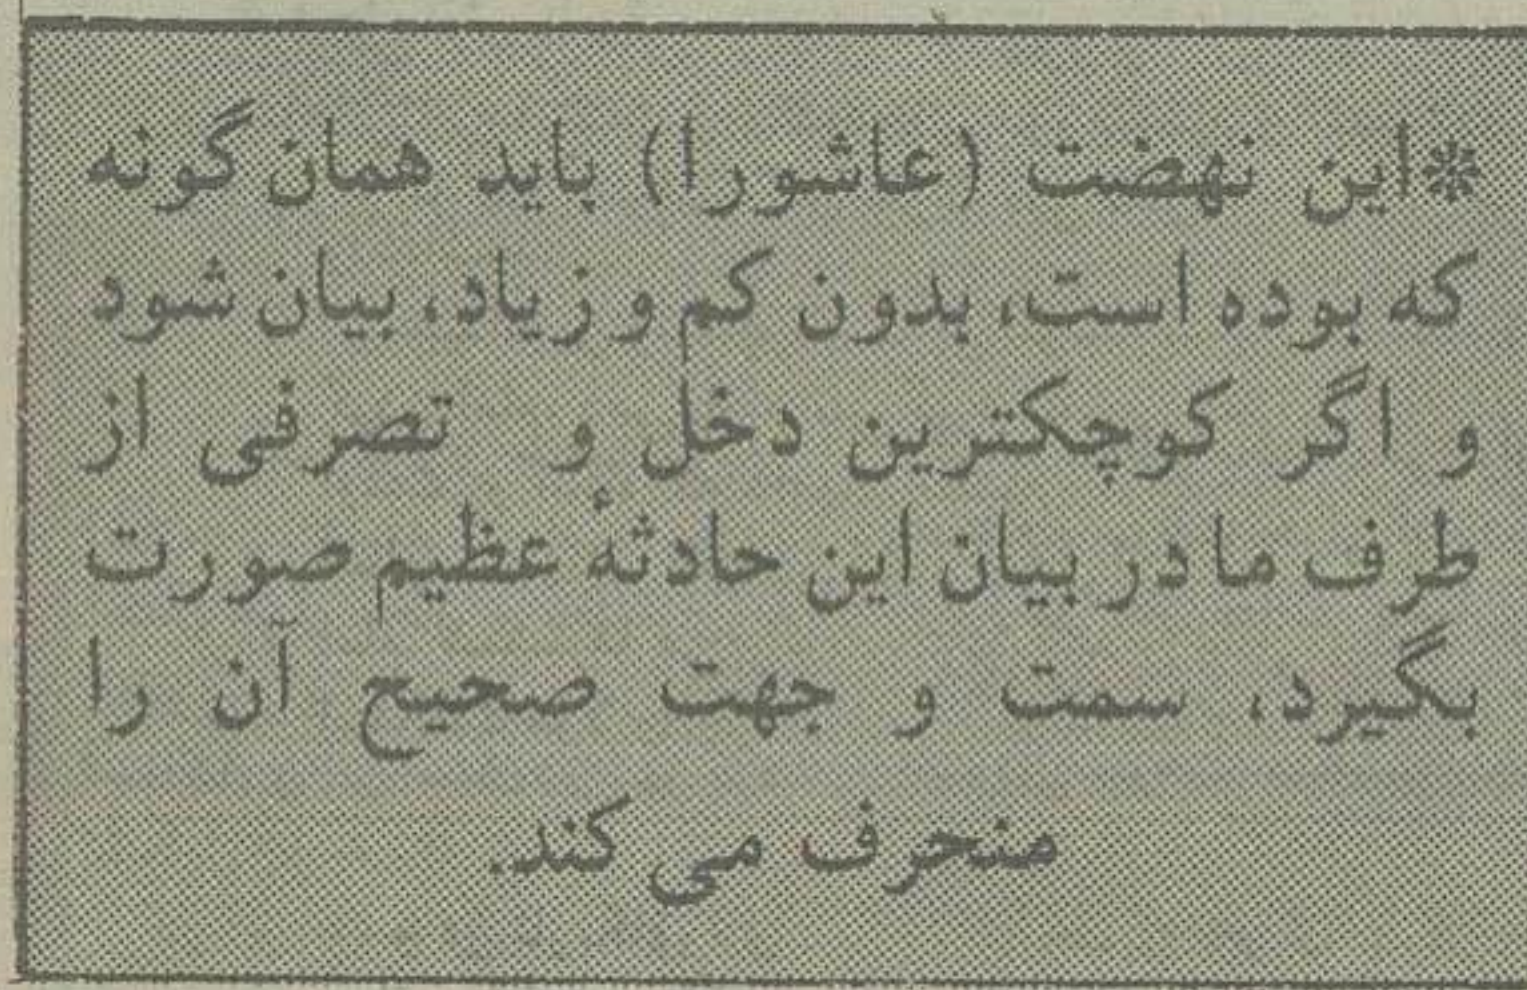 *این نهضت (عاشورا) باید همان گونه
که بوده است، بدون کم و زیاد، بیان شود
و اگر کوچکترین دخل و تصرفی از
طرف ما در بیان این حادثهٔ عظیم صورت
بگیرد، سمت و جهت صحیح آن را
منحرف می کند.